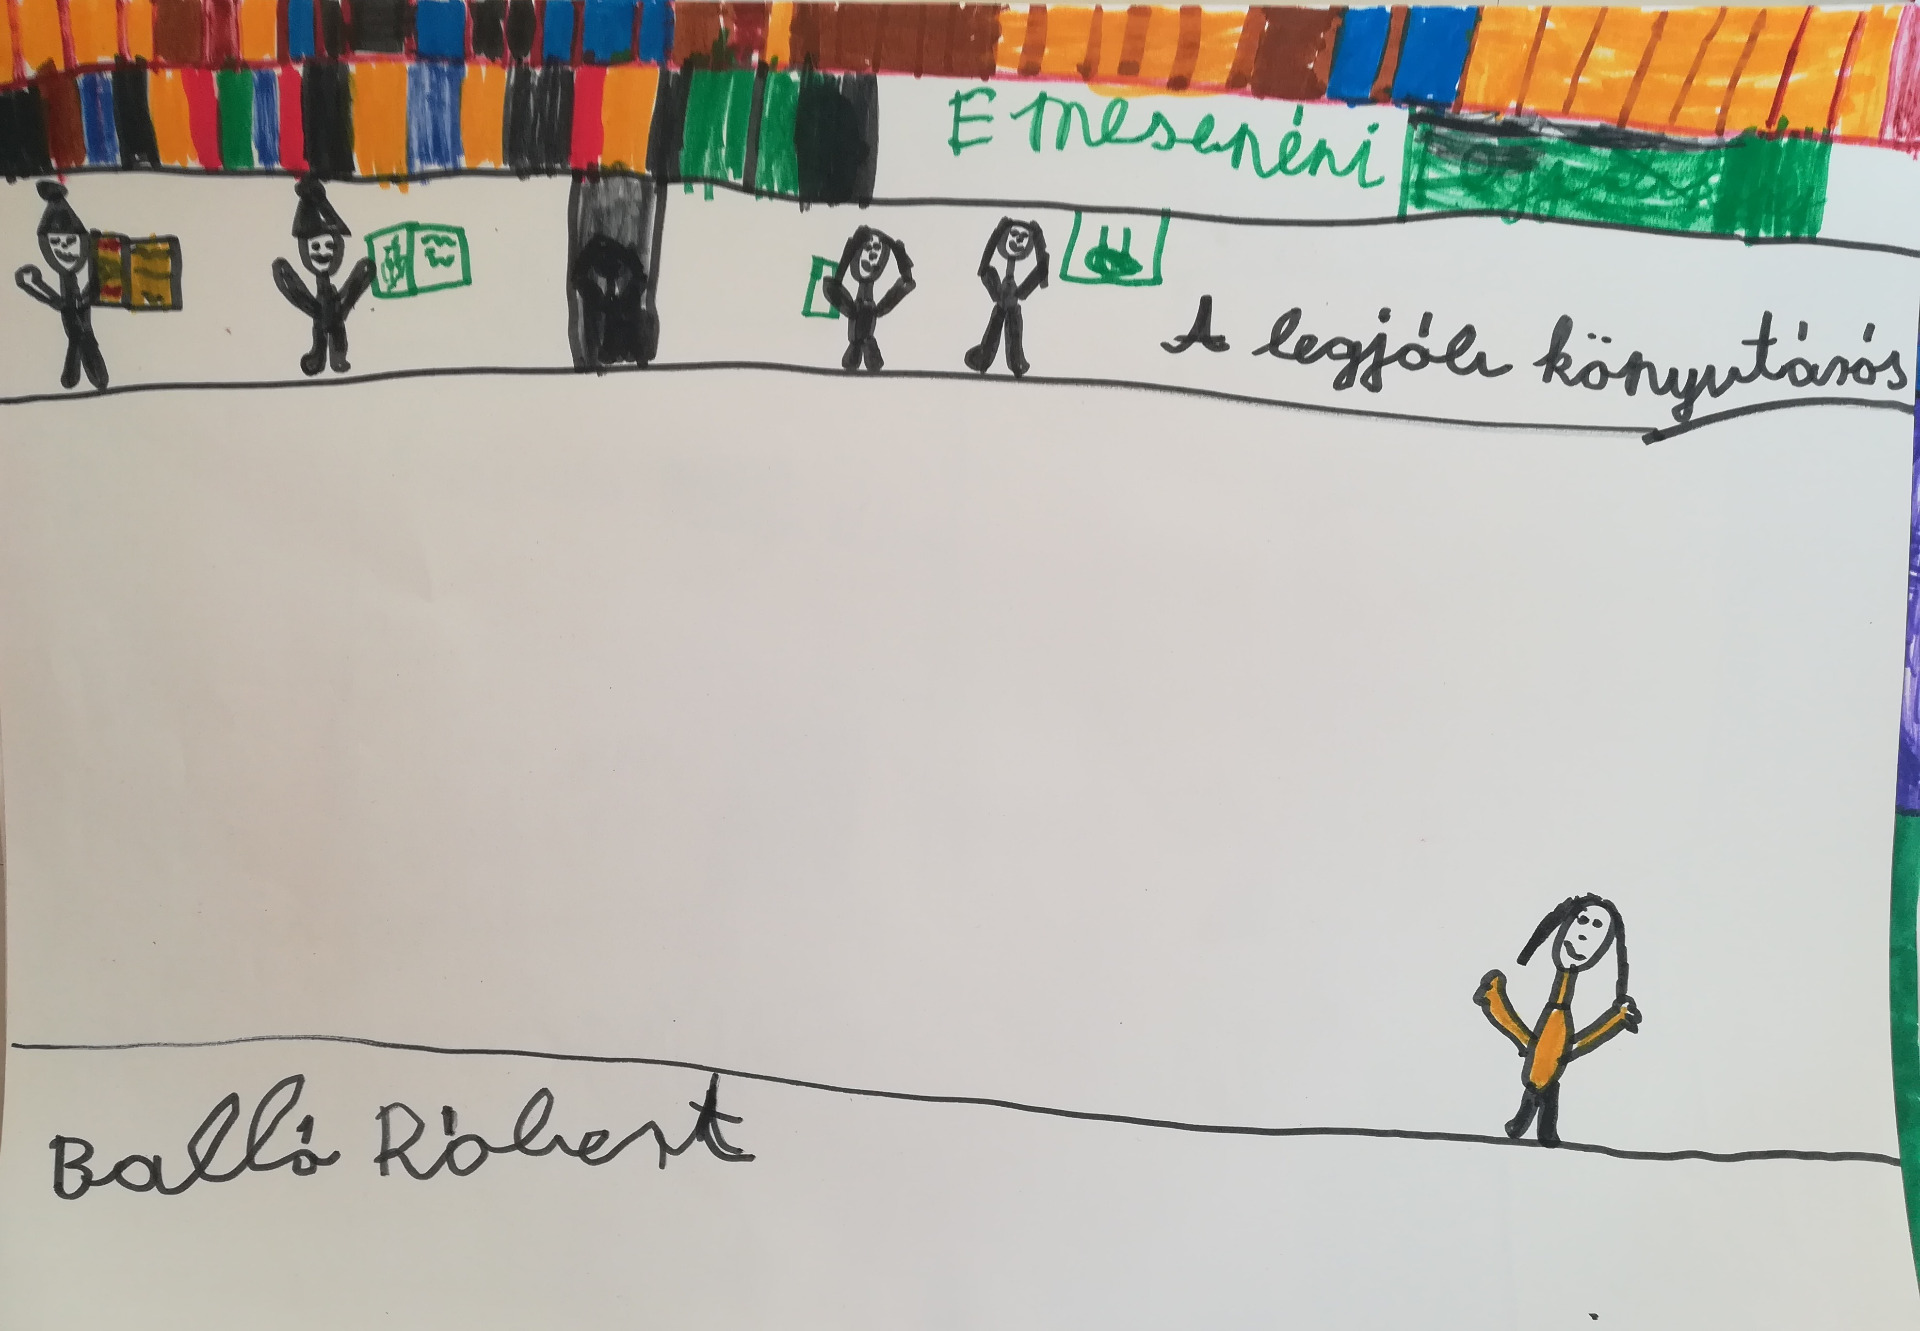 Emesenéni
A legjóbb könyvtárós
Balló Róbert